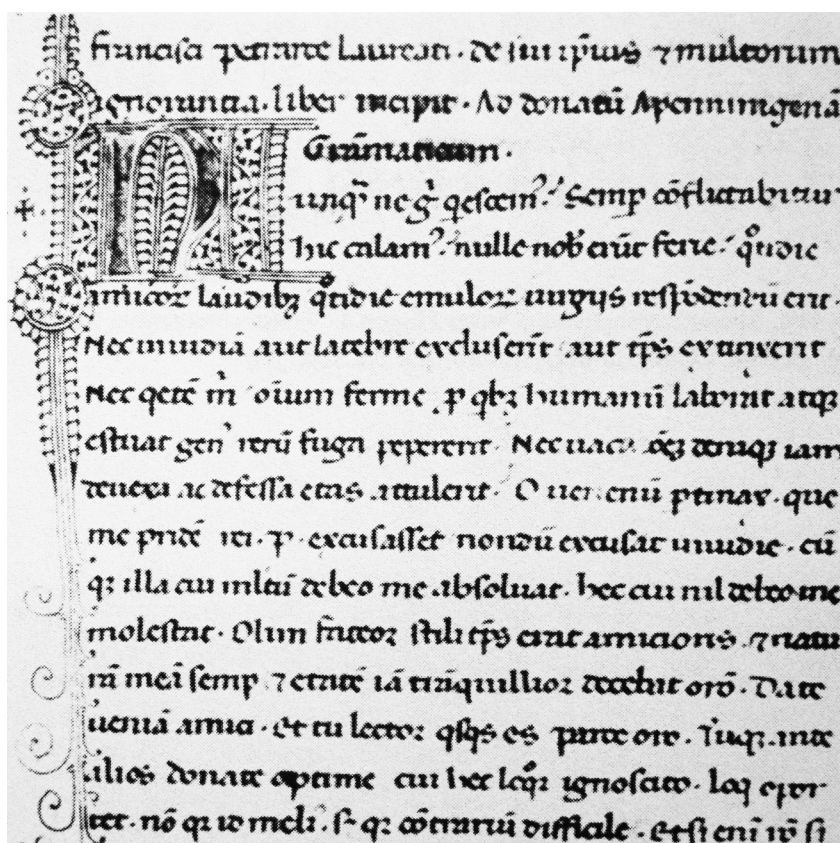 francisci petrarce Laureati · de sui ip̄ius ⁊ multorum
ignorantia · liber incipit · Ad donatū Apenninigenā
Grāmaticum ·
Nunq̄ ne gͥ qescemꝰ? Semp̄ cōflictabitur
hic calamꝰ? nulle nob̾ erūt ferie? qͦtidie
amicoꝝ laudibꝫ qͦtidie emuloꝝ iurgijs respōdendū erit ·
Nec inuidiā aut latebre excluserīt aut tp̄s extinxerit
Nec qetē m̓ oīum ferme ꝓ qbꝫ humanū laborat atqꝫ
estuat genꝰ rerū fuga pepererit · Nec deniqꝫ iam
deuexa ac defessa etas attulerit · O uenenū ptinax · que
me pridē rei · p · excusasset nondū excusat inuidie · cū
qꝫ illa cui multū debeo me absoluat · hec cui nil debeo me
molestat · Olim fateor stili tp̄s erat amicioris ⁊ natu
rā meā semp̄ ⁊ etatē iā trāquillior decebat orō · Date
ueniā amici · et tu lector qsqs es parce oro · Tuqꝫ ante
alios donate optime cui hec loqͦr ignoscito · loq opor
tet · nō qꝫ id meliꝰ · sꝫ qꝫ cōtrariū difficile · etsi enī rō si